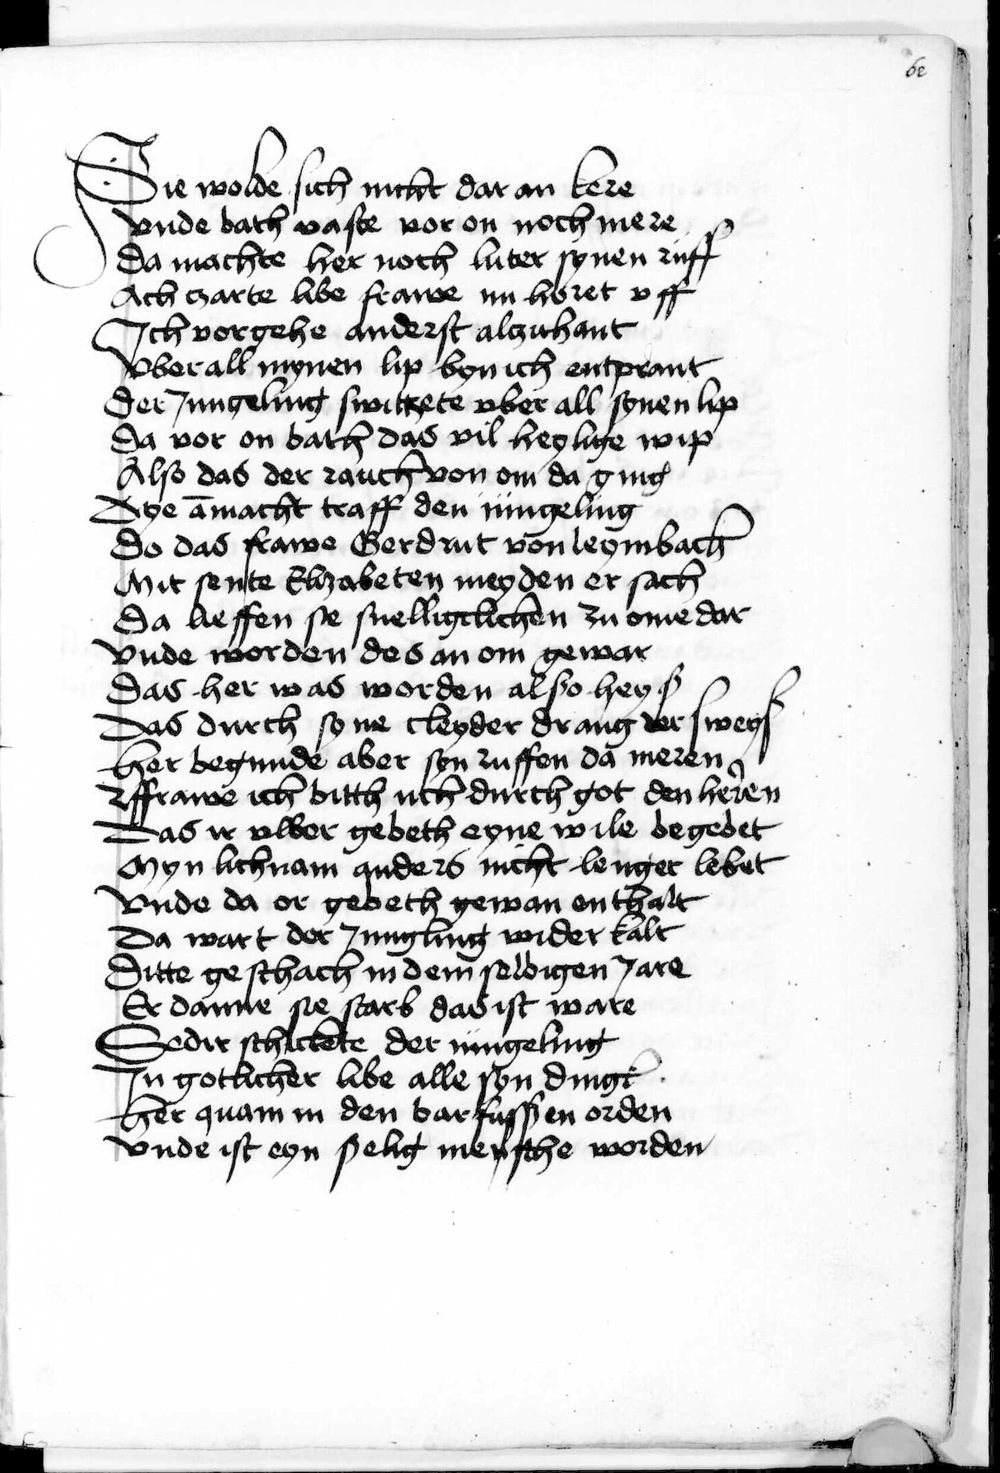 62
Sie wolde sich nicht dar an kere
vnde bath vaste vor on noch mere
Da machte her noch luter synen ruff
Ach czarte libe frawe nu horet vff
Ich vorgehe anderst alzuhant
vber all mynen lip byn ich entprant
Der Jungeling switzete vber all synen lip
Da vor on bath das vil heylige wip
Also das der rauch von om da ging
Dye āmacht traff den iungeling
Do das frawe Gerdrut von leymbach
Mit sente Elyzabeten meyden er sach
Da lieffen sie snelligclichen zu ome dar
vnde worden des an om gewar
Das her was worden also heyß
Das durch syne cleyder drang der sweyß
her begunde aber syn ruffen da meren
frawe ich bitth uch durch got den heren
Das ir vwer gebeth eyne wile begebet
Myn lichnam anders nicht lenger lebet
vnde da or gebeth gewan enthalt
Da wart der Jungling wider kalt
Ditte geschach in dem selbigen Jare
Er danne sie starb das ist ware
Sedir schickete der iungeling
In gotlicher libe alle syn dingk
her quam in den barfussen orden
vnde ist eyn selig mensche worden